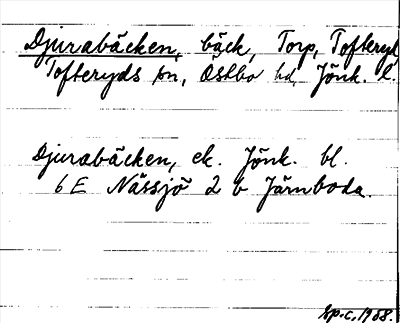 Djurabäcken, bäck, Torp, Tofteryd
Tofteryds sn, Östbo hd, Jönk. l.
Djurabäcken, ek. Jönk. bl.
6 E Nässjö 2 b Järnboda.
Ep.c, 1968.